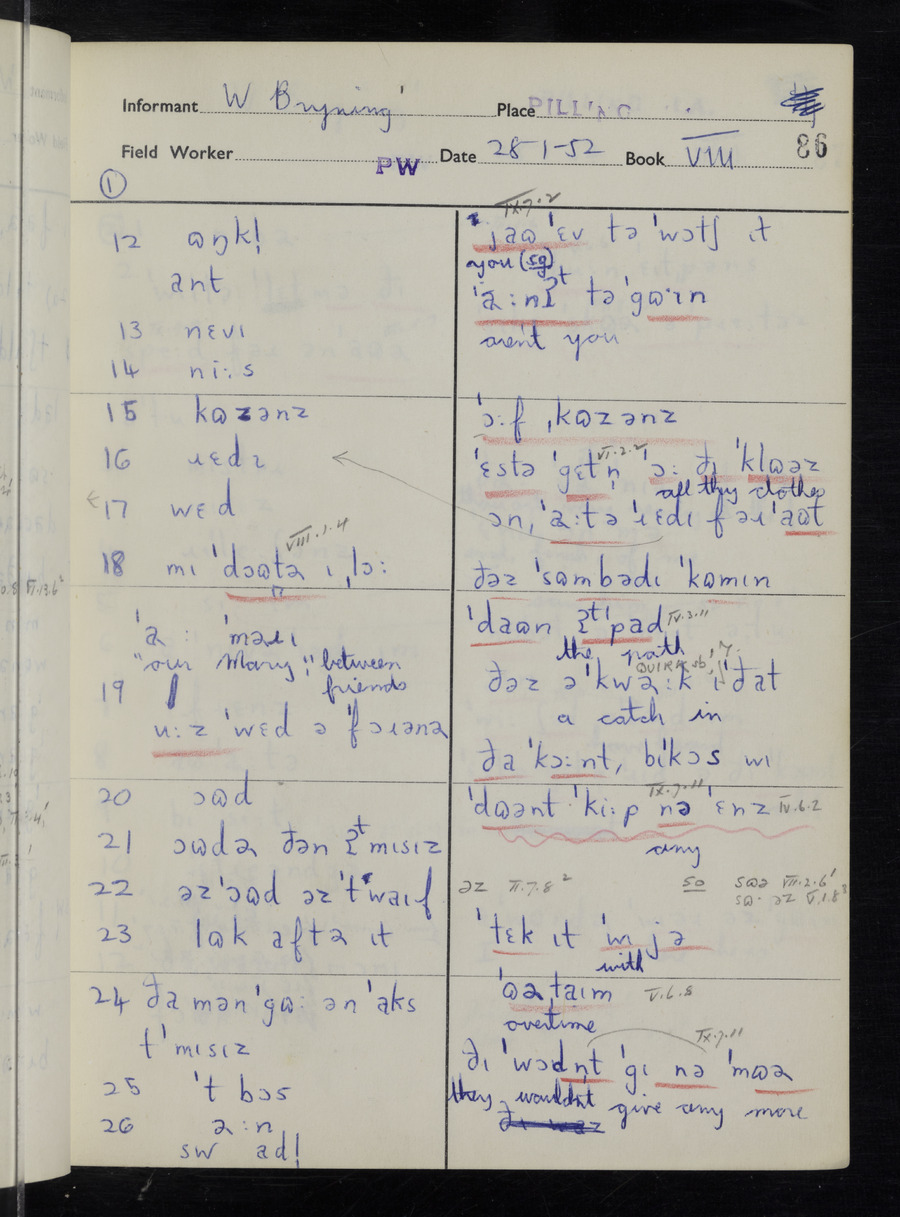 Informant W Bryning Place PILLING
86
Field Worker PW Date 28-1-52 Book VIII
1
12 ɷŋkl̩
ant
13 nɛvɪ
14 ni:s
15 kɷzənz
16 ɹɛdɪ
17 wɛd
18 mɪ ˈdɔɷtə ɪ ˌlɔ:
VIII.1.4
"our Mary": between
friends
19 u:z ˈwɛd ə ˈfɔɹənə
20 ɔɷd
21 ɔɷdə ðən ʔᵗ mɪsɪz
22 əzˈɔɷd əzˈtˈwaɪf
23 lɷk aftə ɪt
24 ða mənˈgɷ: ənˈaks
tˈmɪsɪz
25 ˈt bɔs
26 ə:n
sw ad!
IX.7.2
ˈjaɷ ˈɛv tə ˈwɔtʃ ɪt
you (sg)
ˈə:nʔᵗ tə ˈgɷ·ɪn
aren't you
ˈɔ:f ˌkɷzənz
VI.2.2
ˈɛstə ˈgɛtn̩ ˈɔ: ðɪ ˈklɷəz
all thy clothes
ən, ˈə:tə ˈɹɛdɪ fəɹ ˈaɷt
ðəz ˈsɷmbədɪ ˈkɷmɪn
ˈdaɷn ʔᵗˈpad IV.3.11
the path
ðəz ə ˈkwə:k ɪˈðat
a catch in
ða ˈkɔ:nt, bɪˈkɔs wɪ
IX.7.11
ˈdɷənt ˈki:p nə ˈɛnz IV.6.2
any
əz II.7.8² so sɷə VII.2.6'
sɷ· əz V.1.8³
ˈtɛk ɪt ˈwɪ jə
with
ˈɷəˌtaɪm V.6.8
overtime
IX.7.11
ðɪ ˈwɔdn̩t ˈgɪ nə ˈmɷə
they wouldn't give any more